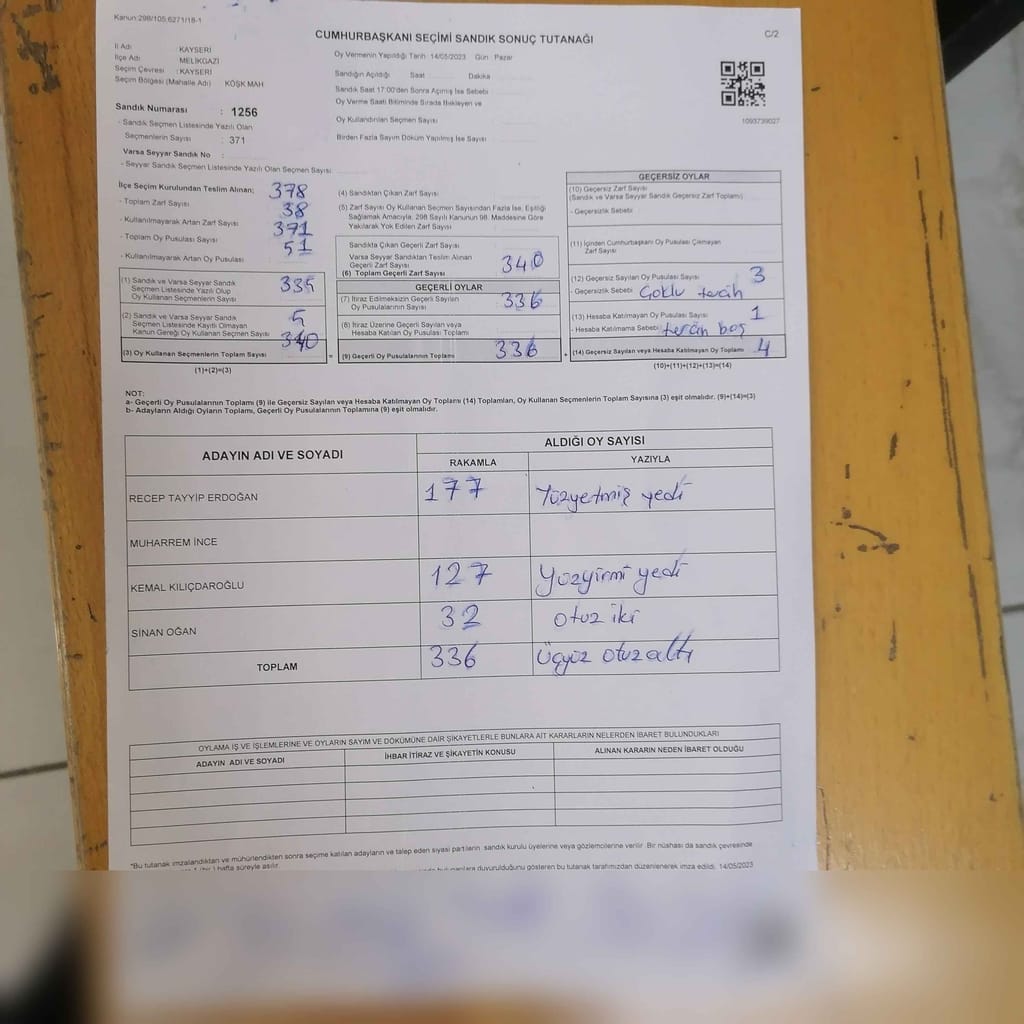 Kanun:298/105.6271/18-1
CUMHURBAŞKANI SEÇİMİ SANDIK SONUÇ TUTANAĞI
C/2
İl Adı : KAYSERİ
İlçe Adı : MELİKGAZİ
Seçim Çevresi : KAYSERİ
Seçim Bölgesi (Mahalle Adı) : KÖŞK MAH
Oy Vermenin Yapıldığı Tarih 14/05/2023 Gün Pazar
Sandığın Açıldığı Saat Dakika
Sandık Saat 17:00'den Sonra Açılmış İse Sebebi
Oy Verme Saati Bitiminde Sırada Bekleyen ve
Oy Kullandırılan Seçmen Sayısı
Birden Fazla Sayım Döküm Yapılmış İse Sayısı
1093739027
Sandık Numarası : 1256
- Sandık Seçmen Listesinde Yazılı Olan
Seçmenlerin Sayısı : 371
Varsa Seyyar Sandık No :
- Seyyar Sandık Seçmen Listesinde Yazılı Olan Seçmen Sayısı
İlçe Seçim Kurulundan Teslim Alınan;
- Toplam Zarf Sayısı 378
- Kullanılmayarak Artan Zarf Sayısı 38
- Toplam Oy Pusulası Sayısı 371
- Kullanılmayarak Artan Oy Pusulası 51
(1) Sandık ve Varsa Seyyar Sandık
Seçmen Listesinde Yazılı Olup
Oy Kullanan Seçmenlerin Sayısı 335
(2) Sandık ve Varsa Seyyar Sandık
Seçmen Listesinde Kayıtlı Olmayan
Kanun Gereği Oy Kullanan Seçmen Sayısı 5
(3) Oy Kullanan Seçmenlerin Toplam Sayısı 340
(1)+(2)=(3)
(4) Sandıktan Çıkan Zarf Sayısı
(5) Zarf Sayısı Oy Kullanan Seçmen Sayısından Fazla İse, Eşitliği
Sağlamak Amacıyla, 298 Sayılı Kanunun 98. Maddesine Göre
Yakılarak Yok Edilen Zarf Sayısı
Sandıkta Çıkan Geçerli Zarf Sayısı
Varsa Seyyar Sandıktan Teslim Alınan
Geçerli Zarf Sayısı
(6) Toplam Geçerli Zarf Sayısı 340
GEÇERLİ OYLAR
(7) İtiraz Edilmeksizin Geçerli Sayılan
Oy Pusulalarının Sayısı 336
(8) İtiraz Üzerine Geçerli Sayılan veya
Hesaba Katılan Oy Pusulası Toplamı
= (9) Geçerli Oy Pusulalarının Toplamı 336
GEÇERSİZ OYLAR
(10) Geçersiz Zarf Sayısı
(Sandık ve Varsa Seyyar Sandık Geçersiz Zarf Toplamı)
- Geçersizlik Sebebi
(11) İçinden Cumhurbaşkanı Oy Pusulası Çıkmayan
Zarf Sayısı
(12) Geçersiz Sayılan Oy Pusulası Sayısı 3
- Geçersizlik Sebebi Çoklu tercih
(13) Hesaba Katılmayan Oy Pusulası Sayısı 1
- Hesaba Katılmama Sebebi tercih boş
+ (14) Geçersiz Sayılan veya Hesaba Katılmayan Oy Toplamı 4
(10)+(11)+(12)+(13)=(14)
NOT:
a- Geçerli Oy Pusulalarının Toplamı (9) ile Geçersiz Sayılan veya Hesaba Katılmayan Oy Toplamı (14) Toplamları, Oy Kullanan Seçmenlerin Toplam Sayısına (3) eşit olmalıdır. (9)+(14)=(3)
b- Adayların Aldığı Oyların Toplamı, Geçerli Oy Pusulalarının Toplamına (9) eşit olmalıdır.
ADAYIN ADI VE SOYADI ALDIĞI OY SAYISI
RAKAMLA YAZIYLA
RECEP TAYYİP ERDOĞAN 177 Yüzyetmiş yedi
MUHARREM İNCE
KEMAL KILIÇDAROĞLU 127 Yüzyirmi yedi
SİNAN OĞAN 32 otuz iki
TOPLAM 336 Üçyüz otuzaltı
OYLAMA İŞ VE İŞLEMLERİNE VE OYLARIN SAYIM VE DÖKÜMÜNE DAİR ŞİKAYETLERLE BUNLARA AİT KARARLARIN NELERDEN İBARET BULUNDUKLARI
ADAYIN ADI VE SOYADI İHBAR İTİRAZ VE ŞİKAYETİN KONUSU ALINAN KARARIN NEDEN İBARET OLDUĞU
"Bu tutanak imzalandıktan ve mühürlendikten sonra seçime katılan adayların ve talep eden siyasi partilerin sandık kurulu üyelerine veya gözlemcilerine verilir. Bir nüshası da sandık çevresinde
hafta süreyle asılır. duyurulduğunu gösteren bu tutanak tarafımızdan düzenlenerek imza edildi. 14/05/2023